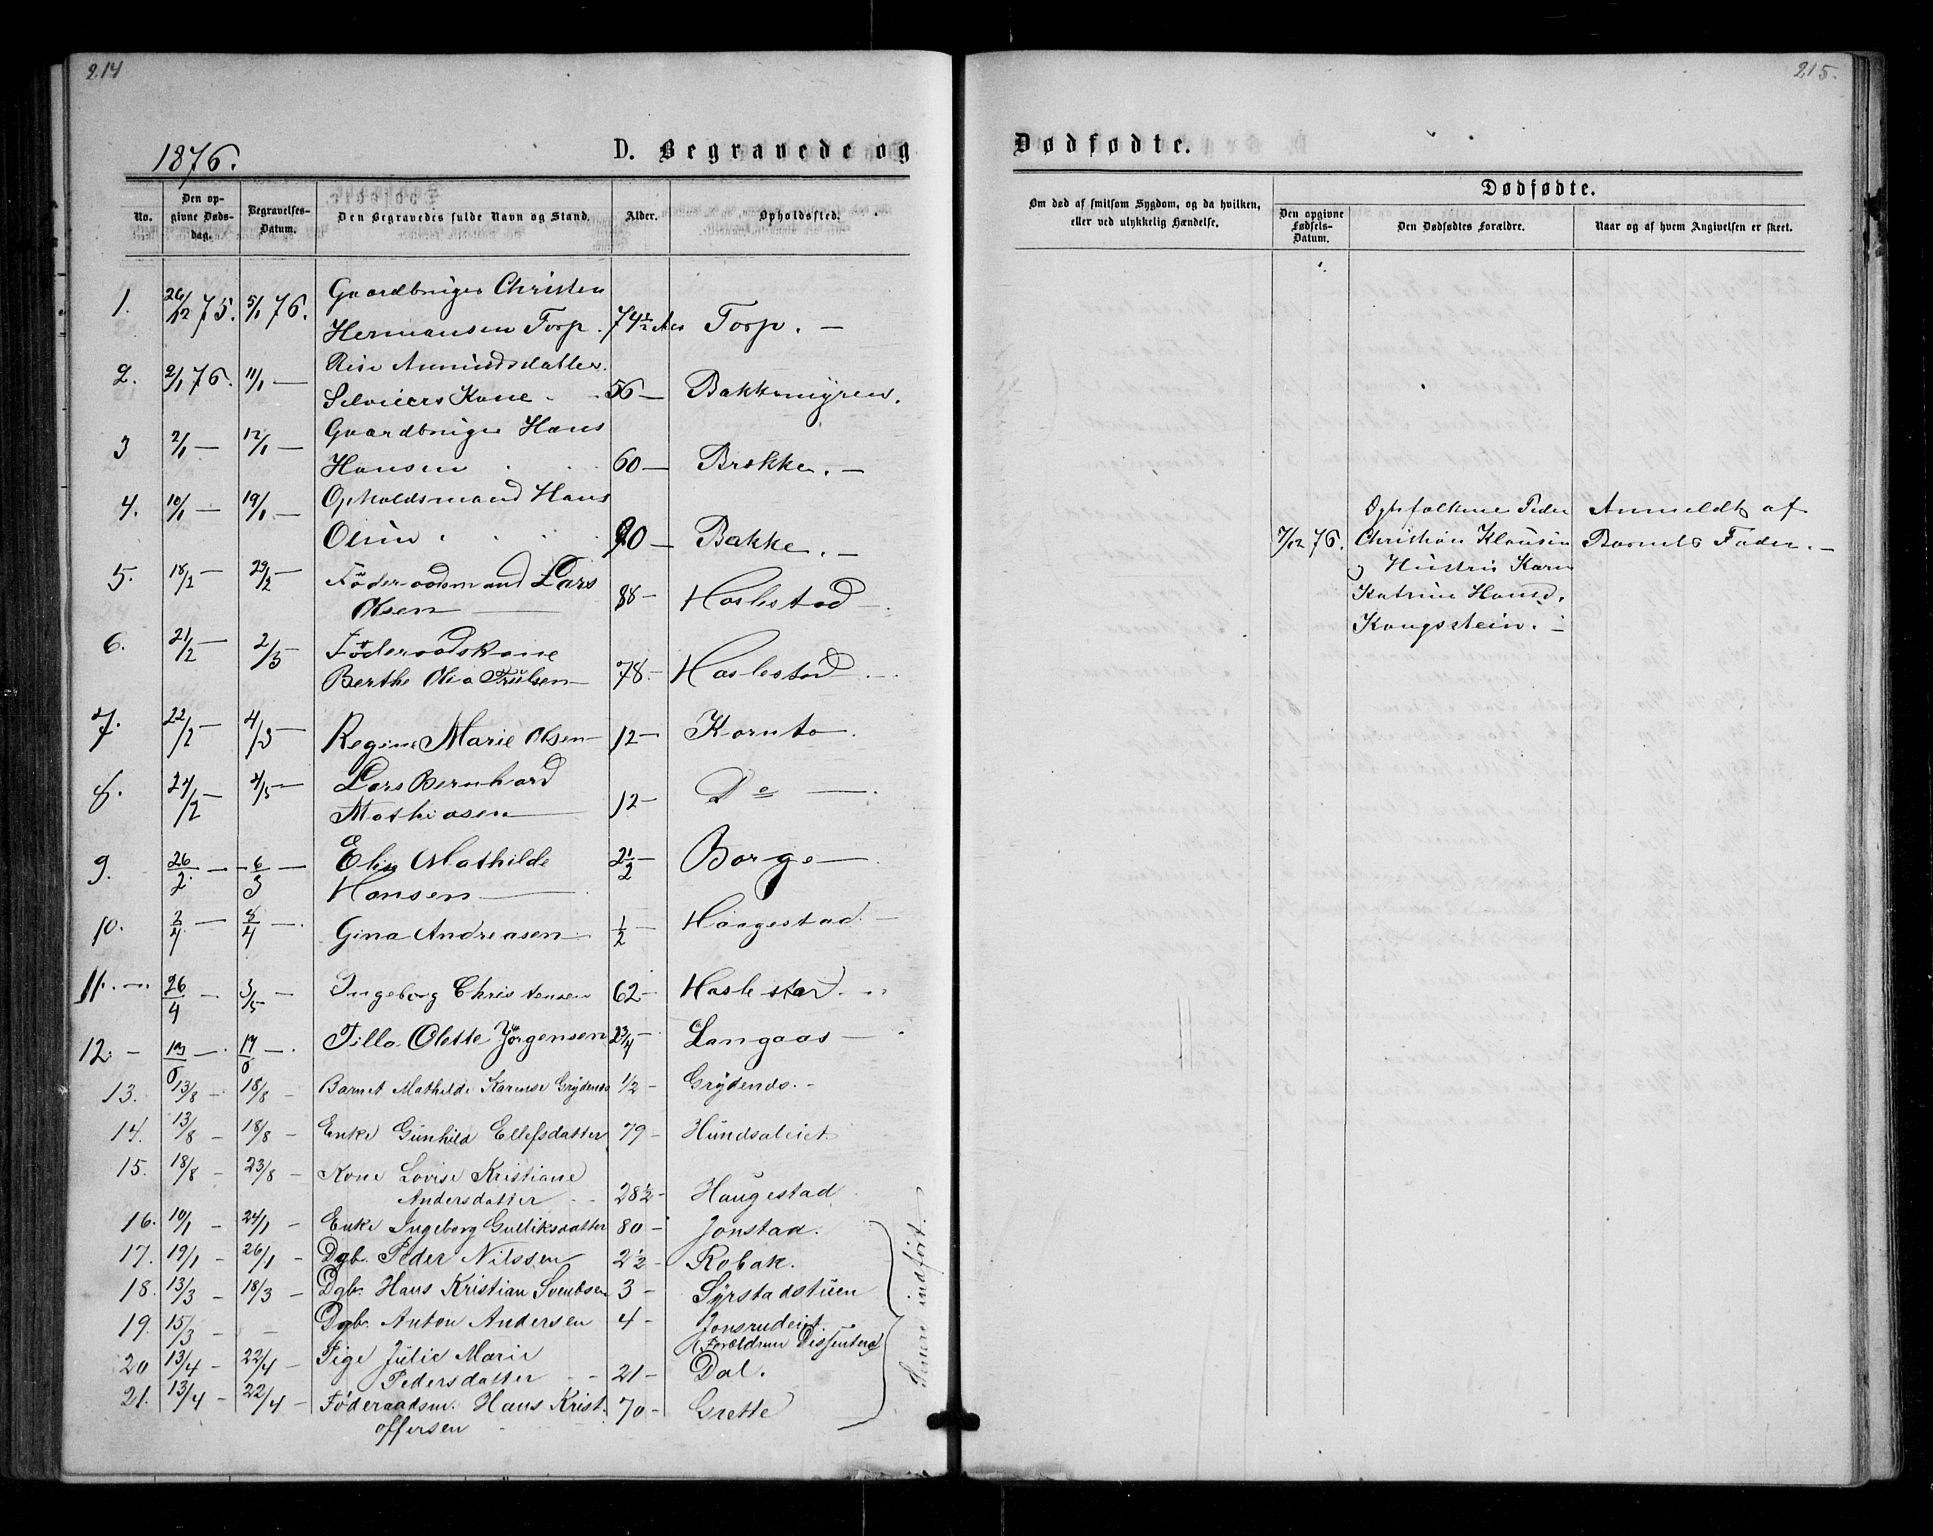 214
1876.
D. Begravede og
No.
Den opgivne Dødsdag.
Begravelses-Datum.
Den Begravedes fulde Navn og Stand.
Alder.
Opholdssted.
1. 26/12 75. 5/1 76. Gaardbruger Christen
Hermansen Torp. 74½ Aar Torp. —
2. 2/1 76. 11/1 — Anundsdatter
Kone . 56 — Bakkemyren.
3 2/1 — 12/1 — Gaardbruger Hans
Hansen . 60 — Brekke. —
4. 10/1 — 19/1 — Opholdsmand Hans
Olsen . 90 — Bakke. —
5. 18/2 — 29/2 — Föderaadsmand Lars
Olsen — 88 — Haslestad —.
6. 21/2 — 2/3 — Föderaadskone
Berthe Olea Trulsen — 78 — Haslestad —.
7. 22/2 — 4/3 — Regine Marie Olsen — 12 — Kornto —.
8. 24/2 — 4/3 — Lars Bernhard
Mathiasen — 12 — Do —.
9. 26/2 — 6/3 — Elise Mathilde
Hansen — 2½ — Borge —.
10. 3/4 — 8/4 — Gina Andreasen — ½ — Haagestad —
11. — 26/4 — 3/5 — Ingeborg Christensen 62 — Haslestad —
12. — 13/6 — 17/6 — Tilla Olette Jörgensen 2¾ — Langaas —
13. 13/8 — 18/8 — Barnet Mathilde Karense Grydends ½ — Grydends. —
14. 13/8 — 18/8 — Enke Gunhild Ellefsdatter 79 — Hundsaleiet
15. 18/8 — 23/8 — Kone Lovise Kristiane
Andersdatter — 28½ — Haugestad
16. 10/1 — 24/1 — Enke Ingeborg Gulliksdatter 80 — Jonstad.
17. 19/1 — 26/1 — Dgb. Peder Nilssen 2½ — Robak.
18. 13/3 — 18/3 — Dgb. Hans Kristian Svendsen 3 — Syrstadstuen
19. 15/3 — — Dgb. Anton Andersen 4 — Jonsrudeiet
(Forældrene Dissentere)
20 13/4 — 22/4 — Pige Julie Marie
Pedersdatter — 21 — Dal.
21. 13/4 — 22/4 — Föderaadsm. Hans Krist-
offersen 70 — Grette
Senere indført.
215.
Dødfødte.
Om død af smitsom Sygdom, og da hvilken,
eller ved ulykkelig Hændelse.
Dødfødte.
Den opgivne Fødsels-Datum.
Den Dødfødtes Forældre.
Naar og af hvem Angivelsen er skeet.
Ægtefolkene Peder Anmeldt af
7/12 76. Christian Klausen Barnets Fader. —
og Hustru Karen
Katrine Hansd.
Kongsstein. —